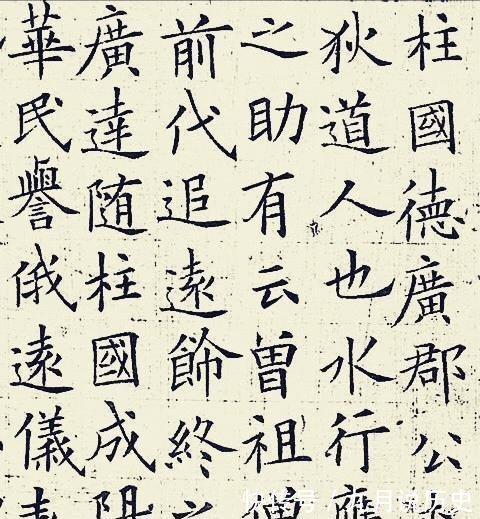 柱國德廣郡公
狄道人也水行應
之助有云曾祖
前代追遠飾終之
廣達随柱國成陽
華民譽俄遠儀